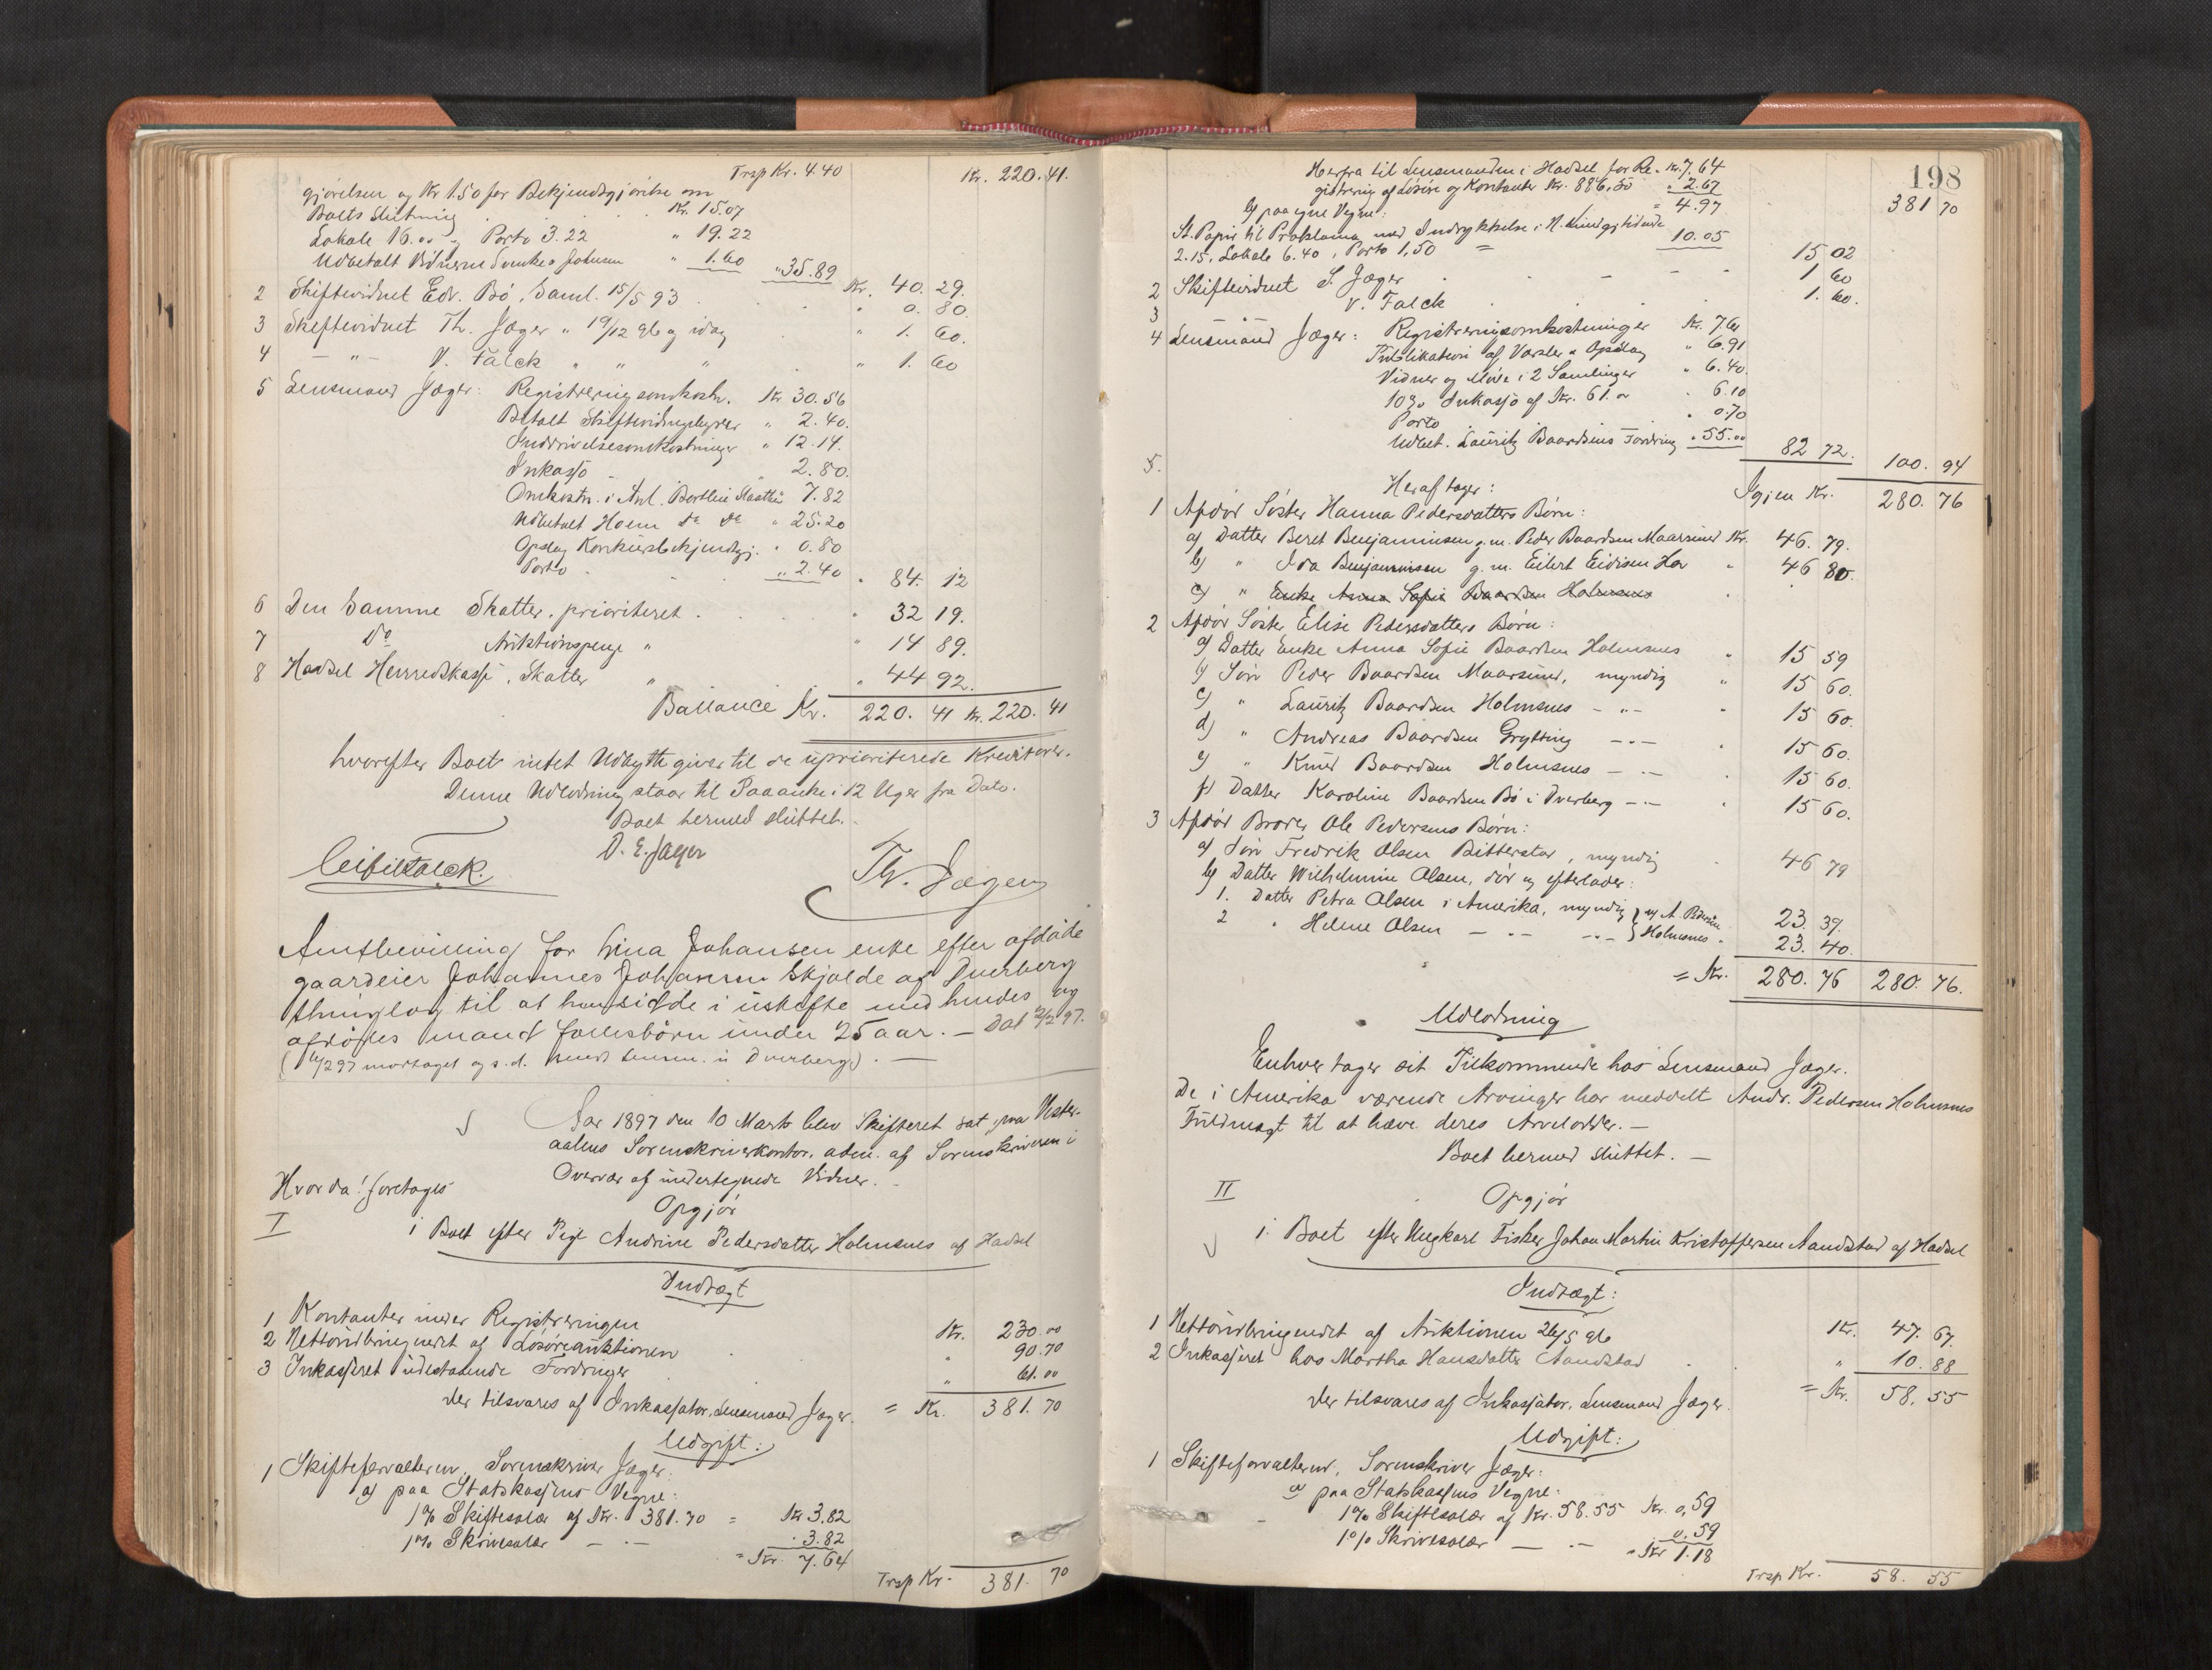 Trsp Kr. 4.40 Kr. 220. 41.
gjørelsen og Kr 1.50 for Bekjendtgjørelse om
Boets Slutning Kr. 15.07
Lokale 16.00 og Porto 3.22 " 19.22
Udbetalt Vidnerne Johnsen " 1.60 " 35.89 Kr. 40. 29.
2 Skiftevidnet Edv. Bö, Saml. 15/5 93 " 0. 80.
3 Skiftevidnet Th. Jæger " 19/12 96 og idag " 1. 60.
4 – " – V. Falck " " " " 1. 60
5 Lensmand Jæger: Registreringsomkostn. Kr 30.56
Betalt Skiftevidnegebyrer " 2.40.
Inddrivelsesomkostninger " 12.14.
Inkasso – " 2.80.
Omkostn. i Anl. 7.82
Udbetalt Hoem do do " 25.20
Opslag Konkursbekjendtgj. " 0.80
Porto " 2.40 " 84. 12
6 Den Samme Skatter, prioriteret " 32 19.
7 Do Auktionspenge " " 14 89.
8 Hadsel Herredskasse, Skatter " " 44 92.
Ballance Kr. 220. 41 Kr. 220. 41
hvorefter Boet intet Udbytte giver til de uprioriterede Kreditorer.
Denne Udlodning staar til Paaanke i 12 Uger fra Dato.
Boet hermed sluttet.
D. E. Jager
Falck. Th. Jæger
Amtbevilling for Lina Johansen enke efter afdøde
gaardeier Johannes Johansen Skjolde af Dverberg
thinglag til at hensidde i uskifte med hendes og
afdødes mand fællesbørn under 25 aar. – Dat 2/2 97.
(16/2 97 modtaget og s. d. lensm. i Dverberg) . —
Aar 1897 den 10 Marts blev Skifteret sat paa Vester-
aalens Sorenskriverkontor, adm. af Sorenskriveren i
Overvær af undertegnede Vidner. –
Hvorda! foretages
Opgjør
I i Boet efter Pige Andrine Pedersdatter Holmsnes af Hadsel
Indtægt
1 Kontanter under Registreringen Kr. 230.00
2 Nettoudbringendet af Løsøreauktionen " 90.70
3 Inkasseret udestaaende Fordringer " 61.00
der tilsvares af Inkassator, Lensmand Jæger. = Kr. 381. 70
Udgift:
1 Skifteforvalteren, Sorenskriver Jæger:
a) paa Statskassens Vegne:
1% Skiftesalær af Kr. 381.70 = Kr 3.82
1% Skrivesalær – " – " 3.82
= Kr. 7.64
Trsp Kr. 381. 70
198
Herfra til Lensmanden i Hadsel for Re- Kr. 7.64 381 70
gistrering af Løsøre og Kontanter Kr. 886,50 " 2.67
b) paa egne Vegne: = 4.97
St. Papir til Proklama med Indrykkelse i N. Kundgj.tidende
2.15, Lokale 6.40, Porto 1,50 = 10.05 15 02
2 Skiftevidnet S. Jæger – – – 1 60
3 – " – V. Falck 1. 60.
4 Lensmand Jæger: Registreringsomkostninger Kr. 7.61
Publikation af Varsler & Opslag " 6.91
Vidner og Møde i 2 Samlinger " 6.40.
10% Inkasso af Kr. 61.00 " 6.10
Porto " 0.70
5. Udbet. Lauritz Baardsens Fordring " 55.00 82 72. 100. 94
Igjen Kr. 280. 76
Heraf tager:
1 Afdøde Søster Hanna Pedersdatters Børn:
a) Datter Beret Benjaminsen g. m. Peder Baardsen Maarsund Kr. 46. 79.
b) " Ida Benjaminsen g. m. Eilert Eidisen Hov " 46 80.
c) " Enke Anna Sofie Baardsen Holmsnes "
2 Afdøde Søster Elise Pedersdatters Børn:
a) Datter Enke Anna Sofie Baardsen Holmsnes " 15 59
b) Søn Peder Baardsen Maarsund, myndig " 15 60.
c) " Lauritz Baardsen Holmsnes – " – " 15 60.
d) " Andreas Baardsen Grytting – " – " 15 60.
e) " Knud Baardsen Holmsnes – " – " 15 60.
f) Datter Karoline Baardsen Bö i Dverberg – " – " 15 60.
3 Afdøde Broder Ole Pedersens Børn:
a) Søn Fredrik Olsen Bitterstad, myndig " 46 79
b) Datter Wilhelmine Olsen, død og efterlader:
1. Datter Petra Olsen i Amerika, myndig } v/ A. Pedersen 23. 39.
2 " Helene Olsen – " – – " – } Holmsnes " 23. 40.
= Kr. 280. 76 280. 76.
Udlodning
Enhver tager sit Tilkommende hos Lensmand Jæger.
De i Amerika værende Arvinger har meddelt Andr. Pedersen Holmsnes
Fuldmagt til at hæve deres Arvelodder. –
Boet hermed sluttet. –
II Opgjør
i Boet efter Ungkarl Fisker Johan Martin Kristoffersen Aandstad af Hadsel
Indtægt:
1 Nettoudbringendet af Auktionen 26/5 96 Kr. 47. 67.
2 Inkasseret hos Martha Hansdatter Aandstad " 10. 88
der tilsvares af Inkassator, Lensmand Jæger. = Kr. 58. 55
Udgift:
1 Skifteforvalteren, Sorenskriver Jæger:
a) paa Statskassens Vegne:
1% Skiftesalær af Kr. 58.55 Kr. 0,59
1% Skrivesalær – " – 0.59
= Kr 1.18
Trsp Kr. 58. 55